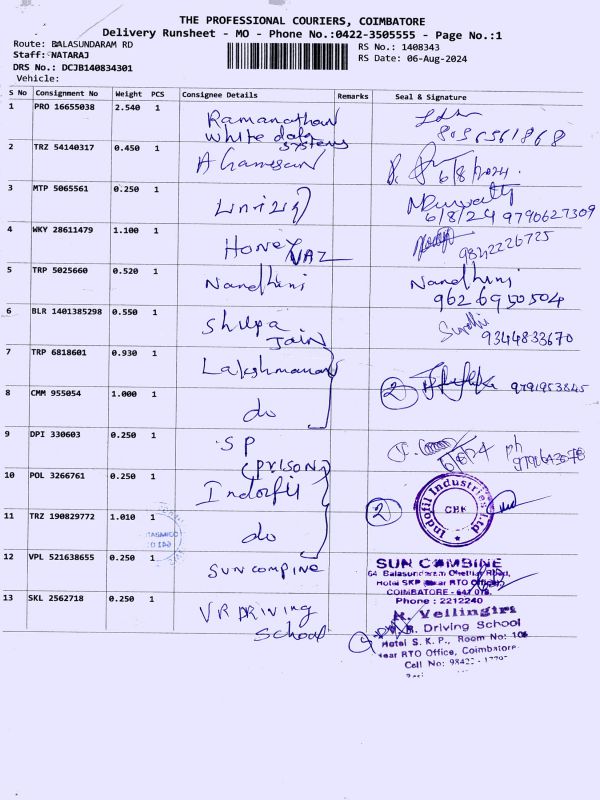 THE PROFESSIONAL COURIERS, COIMBATORE
Delivery Runsheet - MO - Phone No.:0422-3505555 - Page No.:1
Route: BALASUNDARAM RD
RS No.: 1408343
Staff: NATARAJ
RS Date: 06-Aug-2024
DRS No.: DCJB140834301
Vehicle:
S No Consignment No Weight PCS Consignee Details Remarks Seal & Signature
1 PRO 16655038 2.540 1 Ramanathan
white data
systems
2 TRZ 54140317 0.450 1 A Ganesan 6/8/2024.
3 MTP 5065561 0.250 1
6/8/24 9790627309
4 WKY 28611479 1.100 1 Honey VAZ 9842226725
5 TRP 5025660 0.520 1 Nandhini Nandhini
9626950504
6 BLR 1401385298 0.550 1 Shilpa
Jain
9344833670
7 TRP 6818601 0.930 1 Lakshmanan
2 9791953845
8 CMM 955054 1.000 1 do
9 DPI 330603 0.250 1 SP
(PRISON) ph
10 POL 3266761 0.250 1 Indofil
2 Indofil Industries Ltd CBE
11 TRZ 190829772 1.010 1 do
12 VPL 521638655 0.250 1 SUN COMPINE
SUN COMBINE
64 Balasundaram Chettiar Road,
Hotel SKP (Near RTO Office)
COIMBATORE - 641 018.
Phone : 2212240
13 SKL 2562718 0.250 1 VR DRIVING
School
N. Vellingiri
V.R. Driving School
Hotel S. K. P., Room No: 106
Near RTO Office, Coimbatore
Cell No: 98422